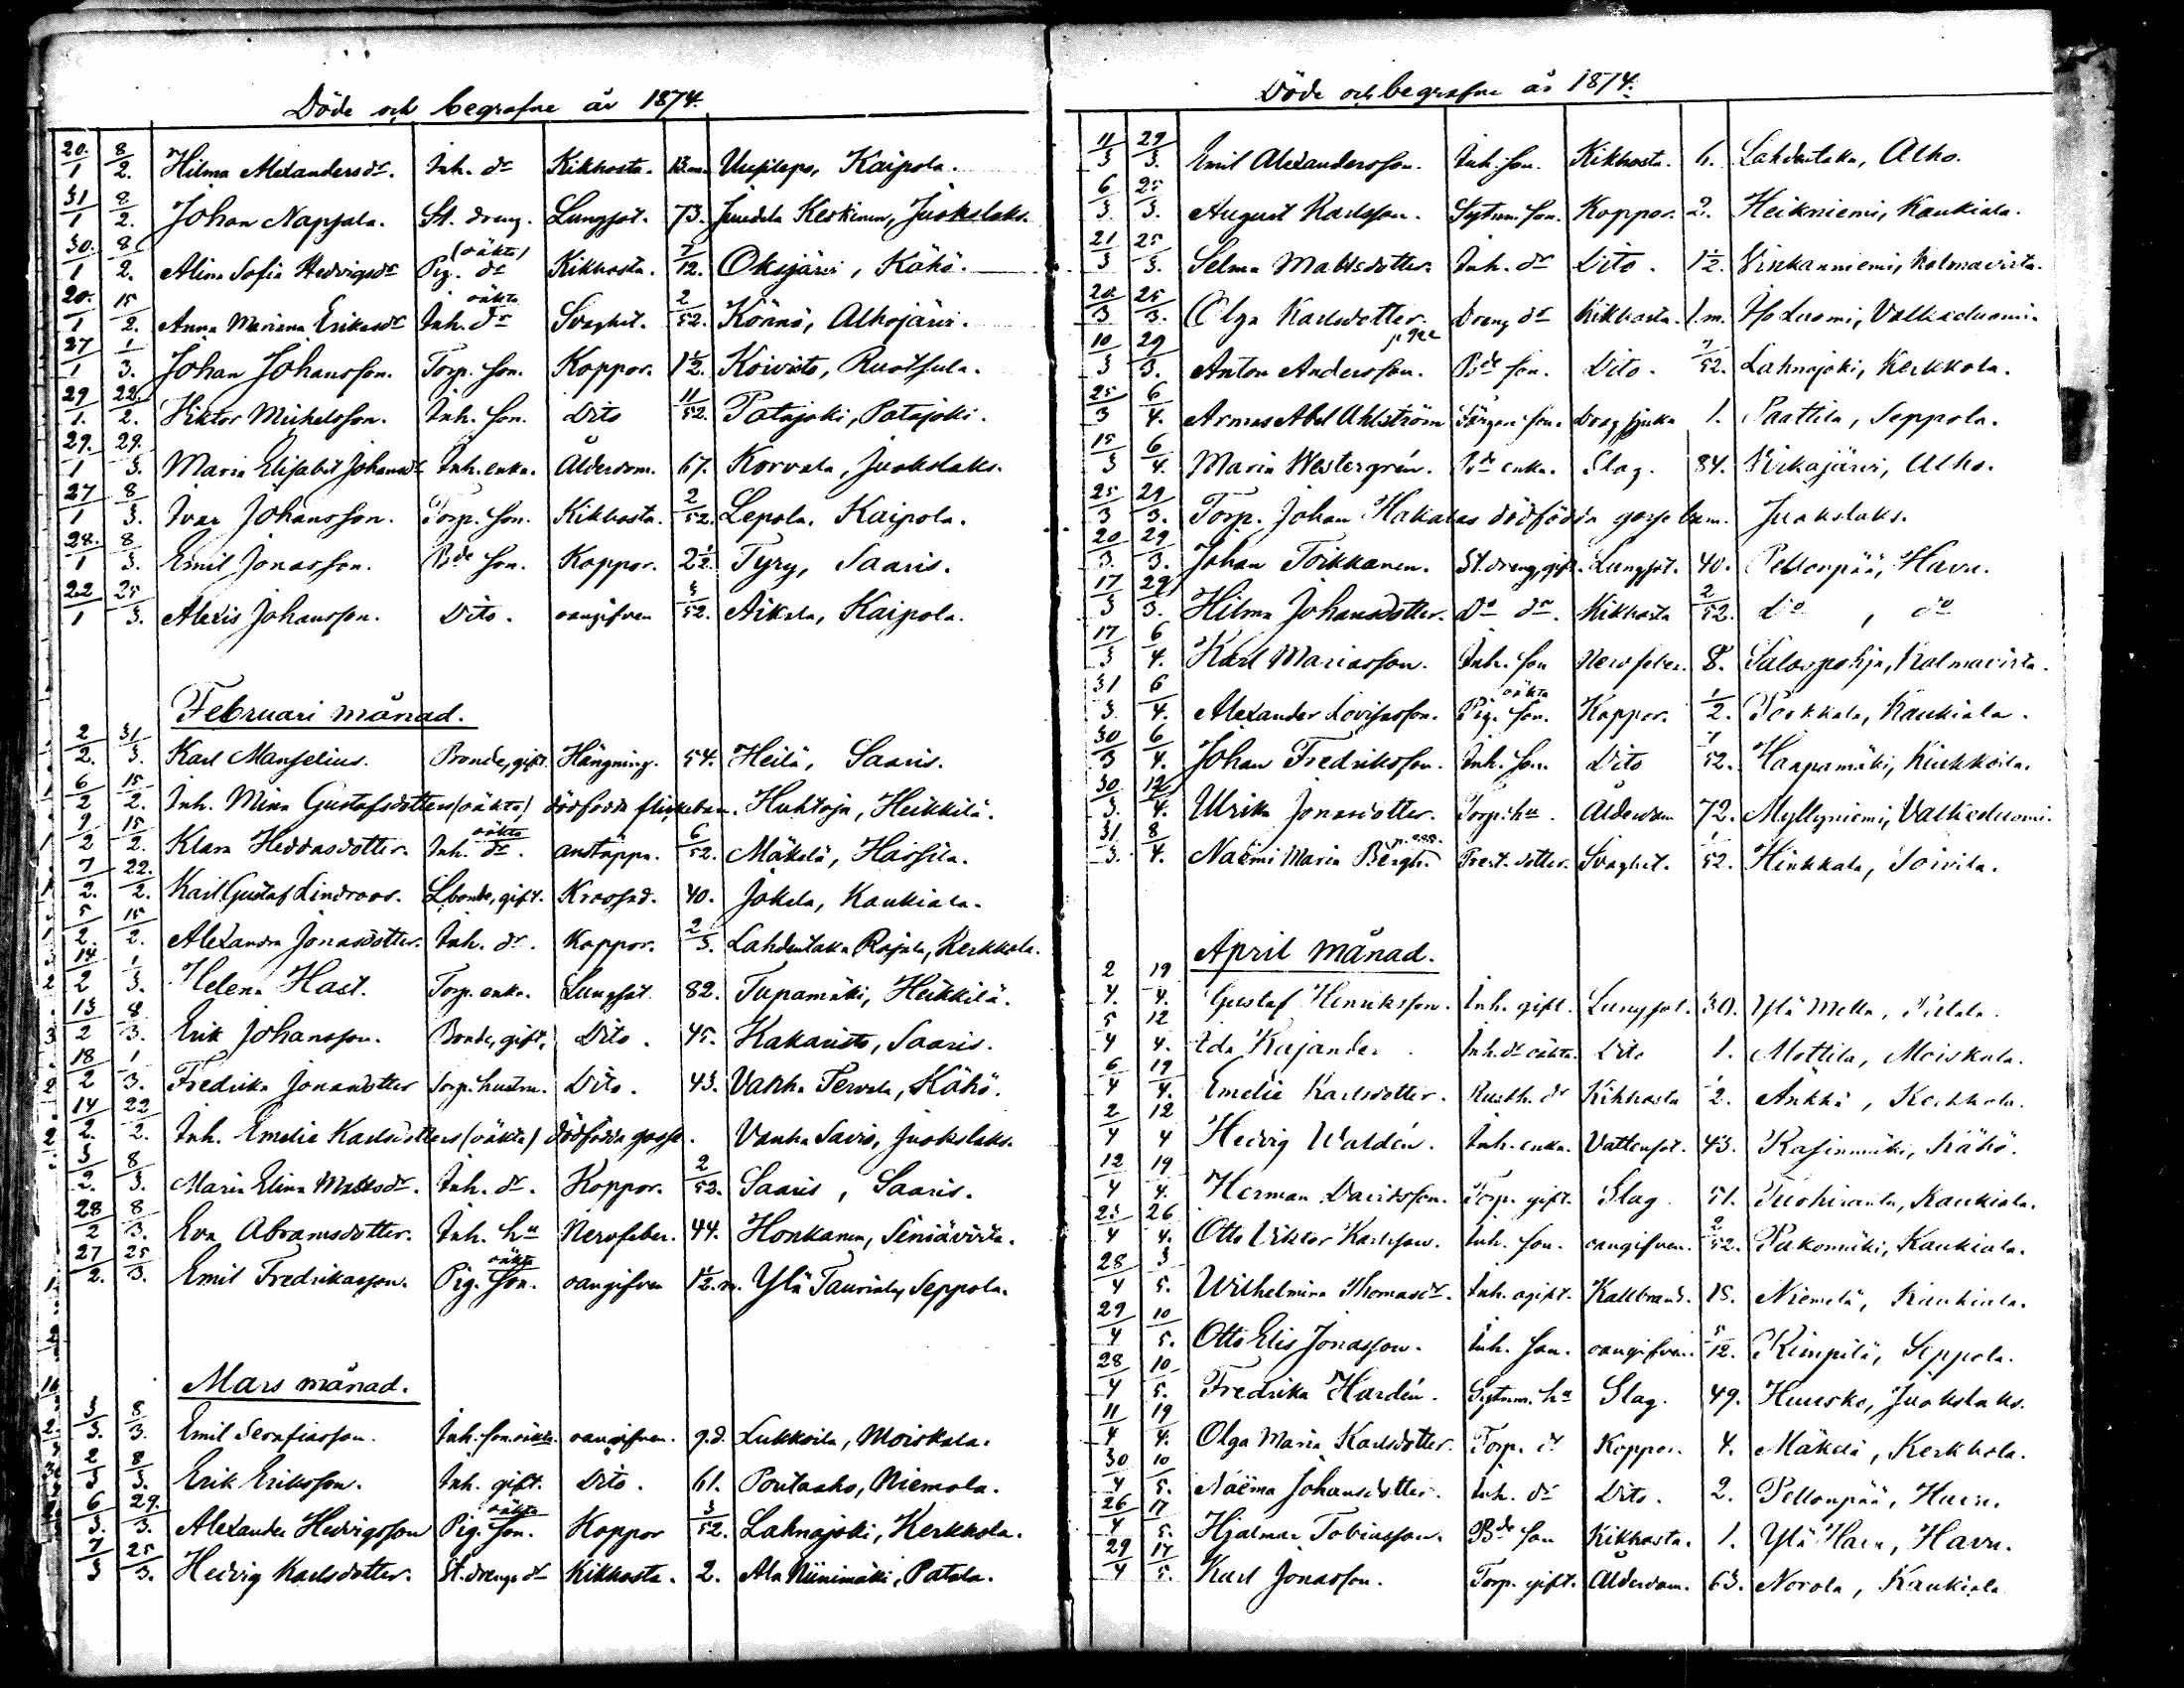 Döde och begrafne år 1874.
20./1 8/2. Hilma Alexandersdr. Inh. dr Kikhosta. 13.m. Kaipola.
31/1 8/2. Johan Napjala. St. dreng. Lungsot. 73. Keskinen, Juokslaks.
30./1 8/2. Alina Sofia Hedvigsdr Pig. dr (oäkta) Kikhosta. 7/12. Oksjärvi, Kähö.
20./1 15/2. Anna Mariana Erikasdr Inh. dr oäkta Svaghet. 2/52. Könnö, Alhojärvi.
27/1 1/3. Johan Johansson. Torp. son. Koppor. 1 1/2. Koivisto, Ruotsula.
29/1. 22/2. Viktor Michelsson. Inh. son. Dito 11/52. Patajoki, Patajoki.
29./1 29./3. Maria Elisabet Johansdr Inh. enka. Ålderdom. 67. Korvala, Juokslaks.
27/1 8/3. Ivar Johansson. Torp. son. Kikhosta. 2/52. Lepola, Kaipola.
28./1 8/3. Emil Jonasson. Bde son. Koppor. 2 1/2. Tyry, Saaris.
22/1 25/3. Alexis Johansson. Dito. oangifven 3/52. Aikala, Kaipola.
Februari månad.
2/2. 31/3. Karl Manselius. Bonde, gift. Hängning. 54. Heilä, Saaris.
6/2 15/2. Inh. Minna Gustafsdotters (oäkta) dödfödda flickebarn. Huhtoja, Heikkilä.
15/2. Klara Heddasdotter. Inh. dr. oäkta anstäppa. 6/52. Mäkelä, Hassila.
7/2. 22./2. Karl Gustaf Lindroos. Lbonde, gift. 40. Jokela, Kaukiala.
5/2. 15/2. Alexandra Jonasdotter. Inh. dr. Koppor. 2/3. Lahdentaka Rajala, Kerkkola.
14/2 1/3. Helena Hast. Torp. enka. Lungsot. 82. Tupamäki, Heikkilä.
13/2 8/3. Erik Johansson. Bonde, gift. Dito. 45. Kakaristo, Saaris.
18/2 1/3. Fredrika Jonasdotter Torp. hustru. Dito. 43. Vanha Tervala, Kähö.
14/2. 22/2. Inh. Emelie Karlsdotters (oäkta) dödfödda gosse. Vanha Savio, Juokslaks.
3/2. 8/3. Maria Elina Mattsdr. Inh. dr. Koppor. 2/52. Saaris, Saaris.
28/2 8/3. Eva Abramsdotter. Inh. hu Nervfeber. 44. Honkanen, Siniävirta.
27/2. 25/3. Emil Fredrikasson. Pig. son. oäkta oangifven 1 1/2.m. Ylä Tauriala, Seppola.
Mars månad.
3/3. 8/3. Emil Serafiasson. Inh. son. oäkta. oangifven. 9.d. Lukkoila, Moiskala.
2/3 8/3. Erik Eriksson. Inh. gift. Dito. 61. Poutaaho, Niemola.
6/3. 29./3. Alexander Hedvigsson Pig. son. oäkta Koppor 3/52. Lahnajoki, Kerkkola.
7/3 25/3. Hedvig Karlsdotter. St. drengs dr Kikhosta. 2. Ala Niinimäki, Patala.
Döde och begrafne år 1874.
11/3 29/3. Emil Alexandersson. Inh. son. Kikhosta. 6. Lahdentaka, Alho.
6/3 25/3. August Karlsson. Sytnm. son. Koppor. 2. Heikniemi, Kaukiala.
21/3 25/3. Selma Mattsdotter. Inh. dr Dito. 1 1/2. Kalmavirta.
20./3 25/3. Olga Karlsdotter. Dreng dr Kikhosta. 1.m. Iso Luomi, Valkeduomi.
10/3 29/3. Anton Andersson. Bde son. Dito. 7/52. Lahnajoki, Kerkkola.
25/3 6/4. Armas Abel Ahlström Färgare son. Dragsjuka 1. Paattila, Seppola.
15/3 6/4. Maria Westergrén. Bde enka. Slag. 84. Virkajärvi, Alho.
25/3 29/3. Torp. Johan Hakalas dödfödda gossebarn. Juokslaks.
20/3. 29/3. Johan Toikkanen. St. dreng, gift. Lungsot. 40. Pellonpää, Havu.
17/3 29/3. Hilma Johansdotter. Do dr. Kikhosta 2/52. do, do
17/3 6/4. Karl Mariasson. Inh. son Nervfeber. 8. Salospohja, Kalmavirta.
31/3. 6/4. Alexander Lovisasson. Pig. son. oäkta Koppor. 1/2. Porkkala, Kaukiala.
30/3 6/4. Johan Fredriksson. Inh. son. Dito 7/52. Haapamäki, Kirkkoila.
30/3. 12/4. Ulrika Jonasdotter. Torp. hu. Ålderdom 72. Myllyniemi, Valkeduomi.
31/3. 8/4. Naëmi Maria Bergh. Prest. dotter. Svaghet. 1/52. Hinkkala, Soivila.
April månad.
2/4. 19/4. Gustaf Henriksson. Inh. gift. Lungsot. 30. Ylä Mella,
5/4 12/4. Ida Kajander. Inh. dr oäkta. Dito 1. Mottila, Moiskala.
6/4 19/4. Emelie Karlsdotter. Rusth. dr Kikhosta 1/2. Änkkä, Kerkkola.
2/4 12/4 Hedvig Waldén. Inh. enka. Vattensot. 43. Rasinmäki, Kähö.
12/4 19/4. Herman Davidsson. Torp. gift. Slag. 51. Tuohiranta, Kaukiala.
23/4 26/4. Otto Viktor Karlsson. Inh. son. oangifven. 2/52. Pakomäki, Kaukiala.
28/4 3/5. Wilhelmina Thomasdr. Inh. ogift. Kallbrand. 18. Niemelä, Kaukiala.
29/4 10/5. Otto Elis Jonasson. Inh. son. oangifven. 5/12. Kimpilä, Seppola.
28/4 10/5. Fredrika Hardén. Sytnm. hu Slag. 49. Huuska, Juokslaks.
11/4 19/4. Olga Maria Karlsdotter. Torp. dr Koppor. 4. Mäkelä, Kerkkola.
30/4 10/5. Naëma Johansdotter. Inh. dr Dito. 2. Pellonpää, Havu.
26/4 17/5. Hjalmar Tobiasson. Bde son Kikhosta. 1. Ylä Havu, Havu.
29/4 17/5. Karl Jonasson. Torp. gift. Ålderdom. 63. Norola, Kaukiala